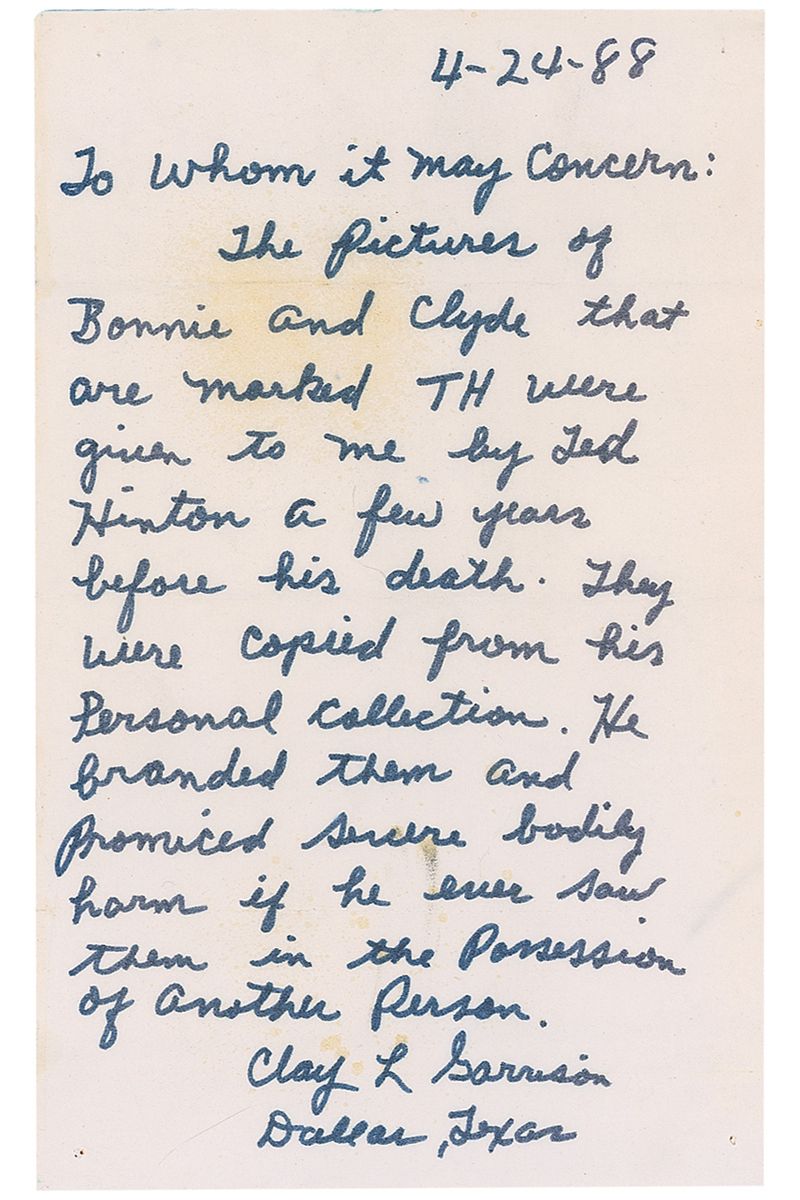 4-24-88
To Whom it may Concern:
The Pictures of
Bonnie and Clyde that
are marked TH were
given to me by Ted
Hinton a few years
before his death. They
were copied from his
Personal collection. He
branded them and
promiced severe bodily
harm if he ever saw
them in the Possession
of another Person.
Clay L Garrison
Dallas, Texas